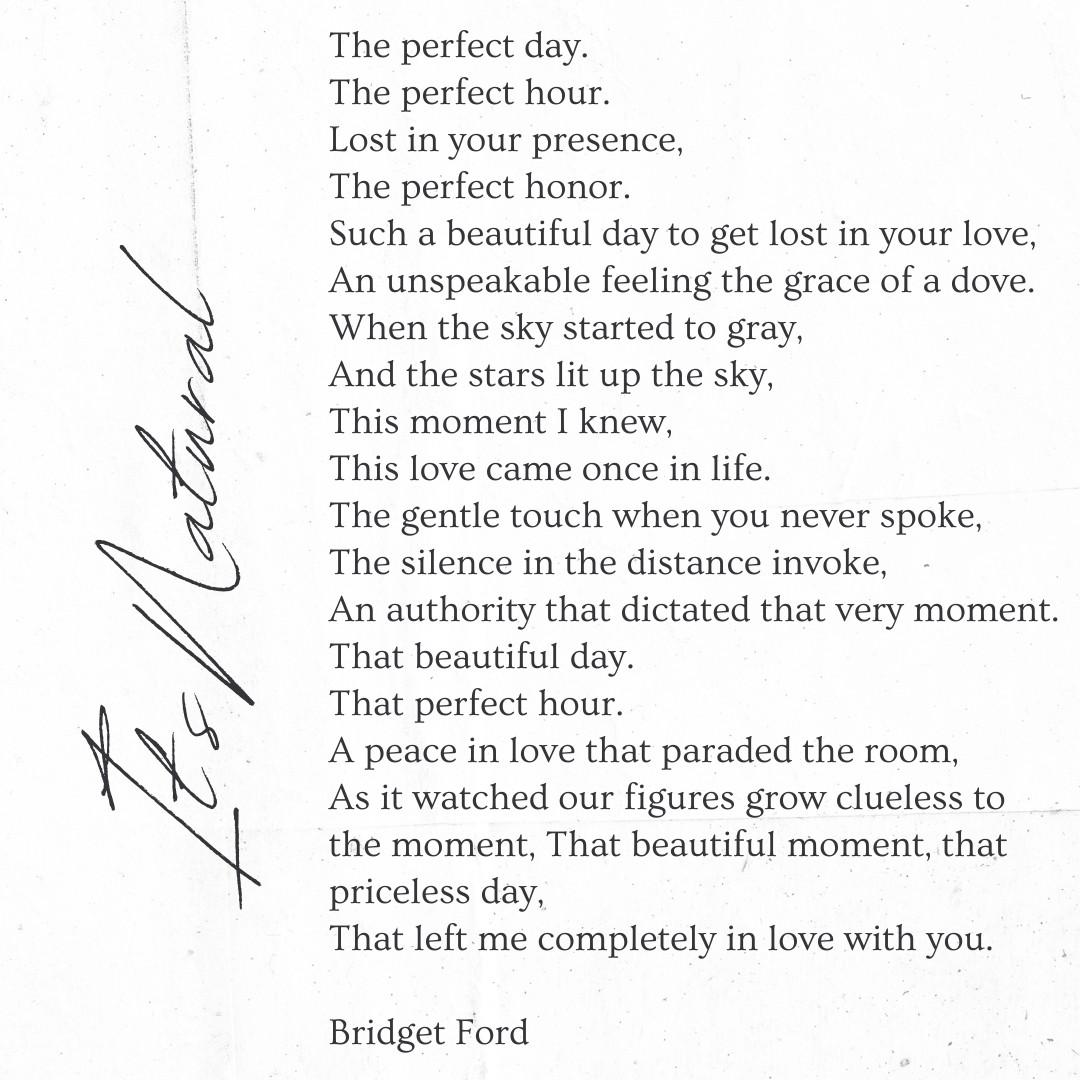 Its Natural
The perfect day.
The perfect hour.
Lost in your presence,
The perfect honor.
Such a beautiful day to get lost in your love,
An unspeakable feeling the grace of a dove.
When the sky started to gray,
And the stars lit up the sky,
This moment I knew,
This love came once in life.
The gentle touch when you never spoke,
The silence in the distance invoke,
An authority that dictated that very moment.
That beautiful day.
That perfect hour.
A peace in love that paraded the room,
As it watched our figures grow clueless to
the moment, That beautiful moment, that
priceless day,
That left me completely in love with you.
Bridget Ford